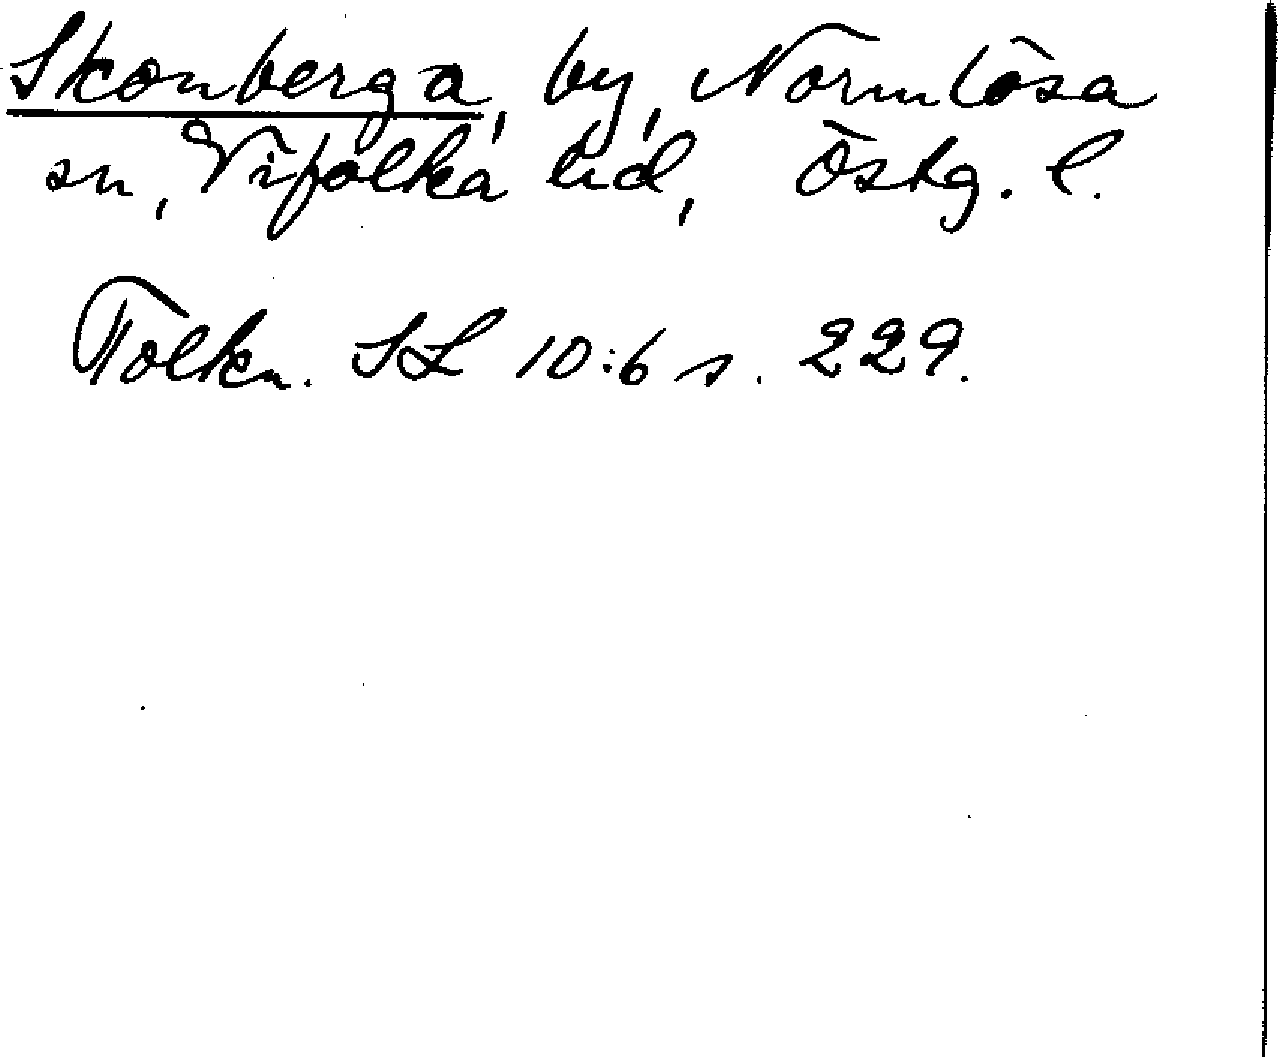 Skonberga, by, Normlösa
sn, Vifolka hd, Östg. l.
Tolkn. SL 10:6 s. 229.